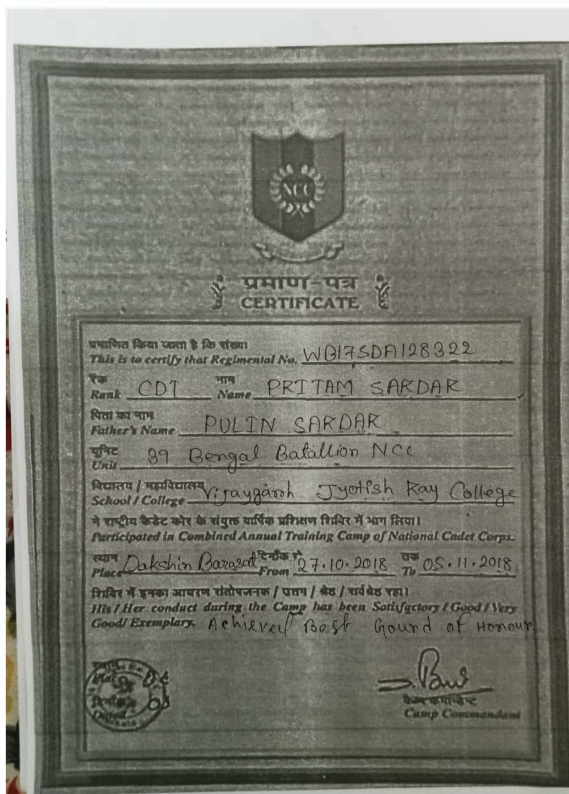 NCC
प्रमाण-पत्र
CERTIFICATE
प्रमाणित किया जाता है कि संख्या
This is to certify that Regimental No. WB17SDA128322
रैंक नाम
Rank CDT Name PRITAM SARDAR
पिता का नाम
Father's Name PULIN SARDAR
यूनिट
Unit 39 Bengal Batallion NCC
विद्यालय / महाविद्यालय
School / College Vijaygarh Jyotish Ray College
ने राष्ट्रीय कैडेट कोर के संयुक्त वार्षिक प्रशिक्षण शिविर में भाग लिया।
Participated in Combined Annual Training Camp of National Cadet Corps.
स्थान दिनाँक से तक
Place Dakshin Barasat From 27.10.2018 To 05.11.2018
शिविर में इनका आचरण संतोषजनक / उत्तम / श्रेष्ठ / सर्वश्रेष्ठ रहा।
His / Her conduct during the Camp has been Satisfactory / Good / Very
Good / Exemplary. Achieved Best Gourd of Honour
कैम्प कमान्डेन्ट
Camp Commandant